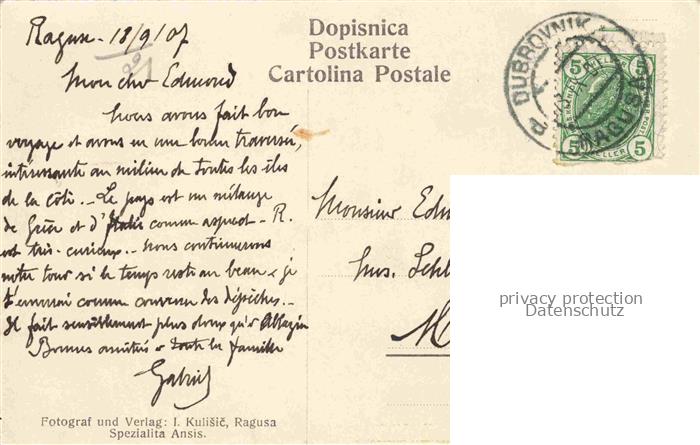 Dopisnica
Postkarte
Cartolina Postale
DUBROVNIK
RAGUSA
5 5
5 HELLER 5
Raguse - 18/9/07
Mon cher Edmond
Nous avons fait bon
voyage et avons eu une bonne traversée,
intéressante au milieu de toutes les îles
de la côte. - Le pays est un mélange
de Grèce et d'Italie comme aspect - R.
est très-curieux. - Nous continuerons
notre tour si le temps reste au beau & je
t'enverrai comme convenu des dépêches. -
Il fait sensiblement plus doux qu'à Abbazia
Bonnes amitiés à toute la famille
Gabriel
Monsieur
Hus.
privacy protection
Datenschutz
Fotograf und Verlag: I. Kulišić, Ragusa
Spezialita Ansis.